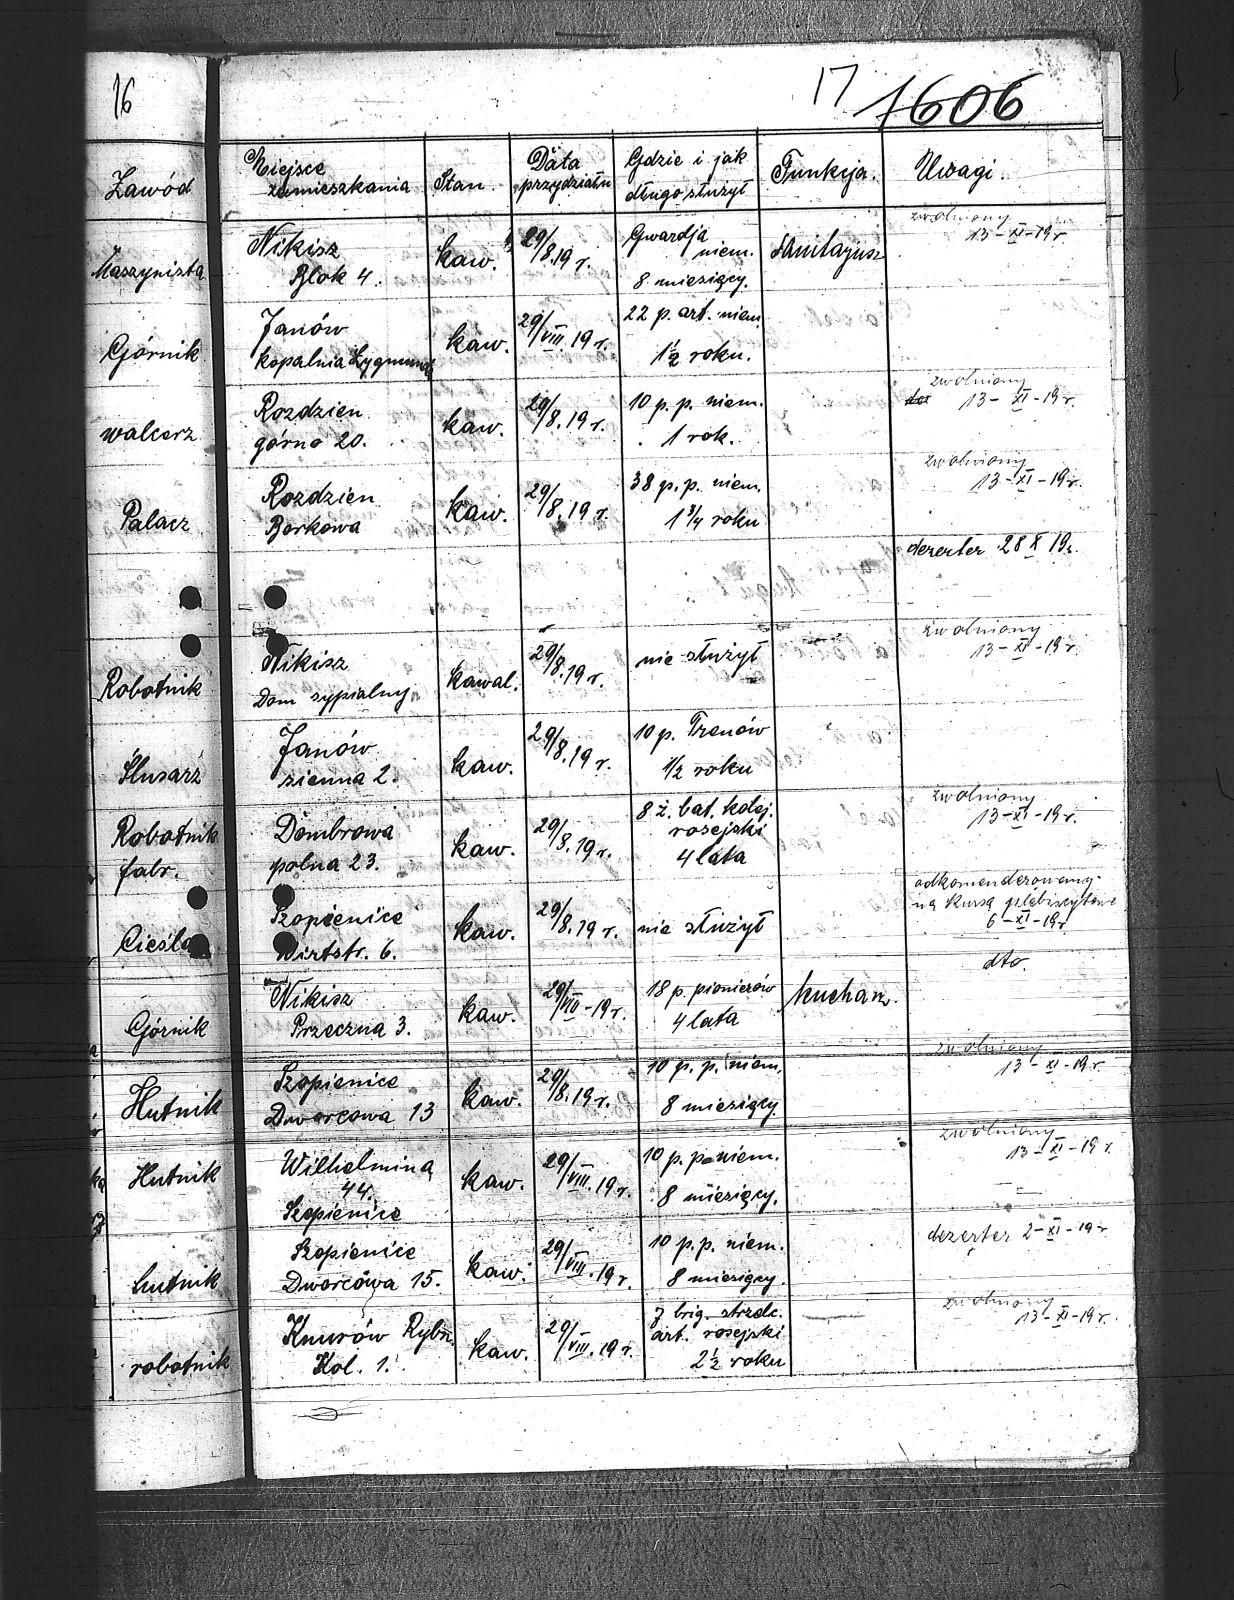 16
17 1606
Zawód
Miejsce
zamieszkania
Stan.
Data
przydziału
Gdzie i jak
długo służył
Funkcja.
Uwagi.
Maszynista
Nikisz
Blok 4.
kaw.
29/8.19 r.
Gwardja
niem.
8 miesięcy.
Sanitarjusz
zwolniony
13-XI-19 r
Górnik
Janów
kopalnia Zygmund
kaw.
29/VIII.19 r.
22 p. art. niem.
1½ roku.
walcerz
Rozdzien
górna 20.
kaw.
29/8.19 r.
10 p. p. niem.
1 rok.
zwolniony
13-XI-19 r.
Palacz
Rozdzien
Borkowa
kaw.
29/8.19 r.
38 p. p. niem.
1 3/4 roku
zwolniony
13-XI-19 r.
dezerter 28 X 19 r.
Robotnik
Nikisz
Dom sypialny
kawal.
29/8.19 r.
nie służył
zwolniony
13-XI-19 r.
Ślusarz
Janów
sienna 2.
kaw.
29/8.19 r.
10 p. Trenów
1/2 roku
Robotnik
fabr.
Dombrowa
polna 23.
kaw.
29/8.19 r.
8 ż. bat. kolej.
rosejski
4 lata
zwolniony
13-XI-19 r.
Cieśla
Szopienice
Wirtstr. 6.
kaw.
29/8.19 r.
nie służył
odkomenderowany
na kursa plebiscytowe
6-XI-19 r
Górnik
Nikisz
Przeczna 3.
kaw.
29/VIII-19 r.
18 p. pionierów
4 lata
kucharz.
dto.
Hutnik
Szopienice
Dworcowa 13
kaw.
29/8.19 r.
10 p. p. niem.
8 miesięcy
zwolniony
13-XI-19 r.
Hutnik
Wilhelmina
44.
Szopienice
kaw.
29/VIII.19 r.
10 p. p. niem.
8 miesięcy.
zwolniony
13-XI-19 r.
hutnik
Szopienice
Dworcowa 15.
kaw.
29/VIII.19 r.
10 p.p. niem.
8 miesięcy.
dezerter 2-XI-19 r
robotnik
Knurów Rybn.
Kol. 1.
kaw.
29/VIII.19 r.
7 brig. strzelc.
art. rosejski
2½ roku
zwolniony
13-XI-19 r.